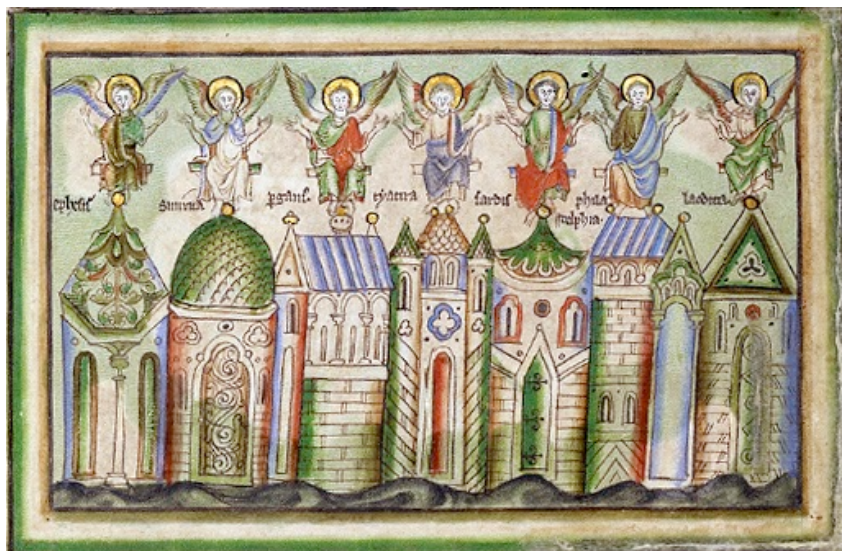 ephesus
smirna
pergamus
tyatira
sardis
phila
delphia.
laodicia